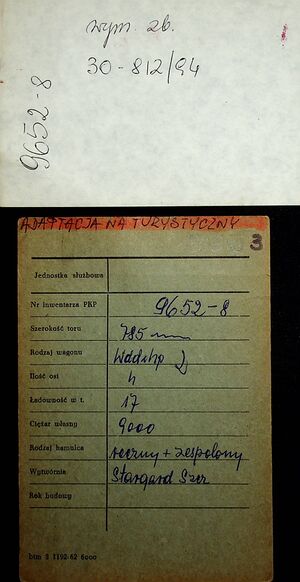 wym. zb.
30-812/94
9652-8
ADAPTACJA NA TURYSTYCZNY
3
Jednostka służbowa
Nr inwentarza PKP 9652-8
Szerokość toru 785 mm
Rodzaj wagonu Wddxhp
Ilość osi 4
Ładowność w t. 17
Ciężar własny 9000
Rodzaj hamulca ręczny + zespolony
Wytwórnia Stargard Szcz
Rok budowy
btm 3 1192-62 6000